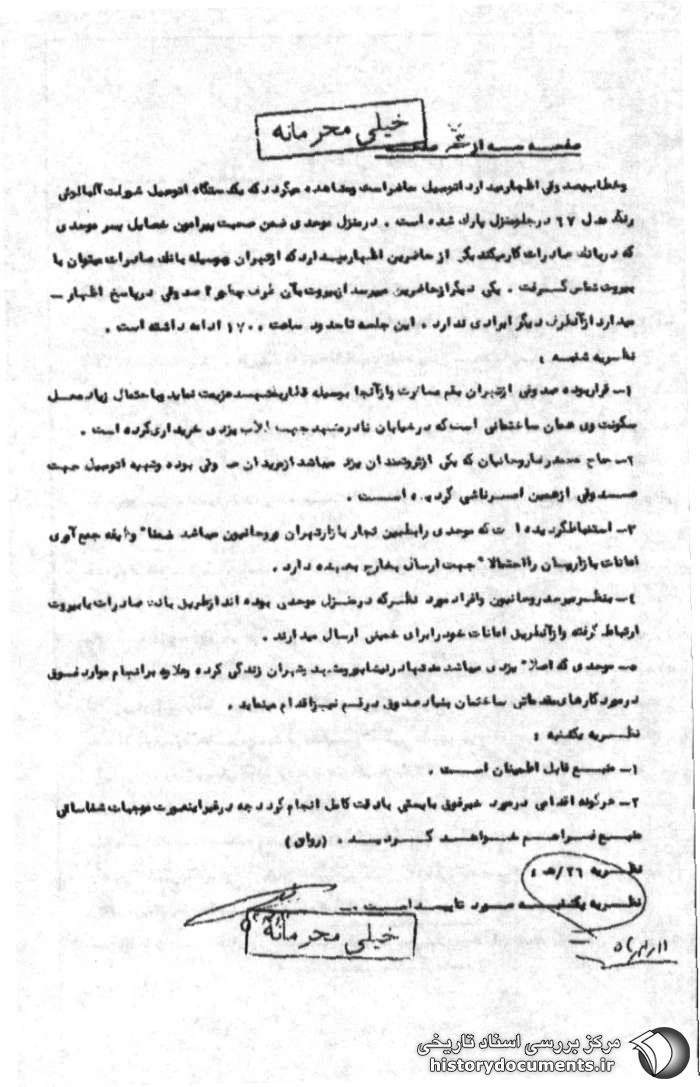 خیلی محرمانه
صفحه سه از
و خطاب بصدوقی اظهار میدارد اتومبیل حاضر است و مشاهده میگردد که یک دستگاه اتومبیل شورلت آلبالوئی
رنگ مدل ٦٧ در جلو منزل پارک شده است . در منزل موحدی ضمن صحبت پیرامون خصایل پسر موحدی
که در بانک صادرات کار میکند یکی از حاضرین اظهار میدارد که از تهران بوسیله بانک صادرات میتوان با
بیروت تماس گرفت . یکی دیگر از حاضرین میپرسد از بیروت بآن طرف چطور ؟ صدوقی در پاسخ اظهار –
میدارد از آنطرف دیگر ایرادی ندارد . این جلسه تا حدود ساعت ١٧٠٠ ادامه داشته است .
نظریه شنبه :
١– قرار بوده صدوقی از تهران بقم مسافرت و از آنجا بوسیله قطار بمشهد عزیمت نماید و باحتمال زیاد محل
سکونت وی همان ساختمانی است که در خیابان نادر مشهد جهت طلاب یزدی خریداری کرده است .
٢– حاج محمد رضا روحانیان که یکی از ثروتمندان یزد میباشد از مریدان صدوقی بوده و تهیه اتومبیل جهت
صدوقی از همین امر ناشی گردیده است .
٣– استنباط گردیده است که موحدی رابط بین تجار بازار تهران و روحانیون میباشد ضمنا" وظیفه جمع آوری
اعانات بازاریان را احتمالا" جهت ارسال بخارج بعهده دارد .
٤– بنظر میرسد روحانیون و افراد مورد نظر که در منزل موحدی بوده اند از طریق بانک صادرات با بیروت
ارتباط گرفته و از آنطریق اعانات خود را برای خمینی ارسال میدارند .
٥– موحدی که اصلا" یزدی میباشد مدتها در نیشابور و مشهد و تهران زندگی کرده و علاوه بر انجام موارد فوق
در مورد کارهای مقدماتی ساختمان بنیاد صدوق در قم نیز اقدام مینماید .
نظریه یکشنبه :
١– منبع قابل اطمینان است .
٢– هرگونه اقدامی در مورد خبر فوق بایستی با دقت کامل انجام گردد چه در غیر اینصورت موجبات شناسائی
منبع فراهم خواهد گردید .
نظریه ٢٦/هـ :
نظریه یکشنبه مورد تایید است .
خیلی محرمانه
مرکز بررسی اسناد تاریخی
historydocuments.ir